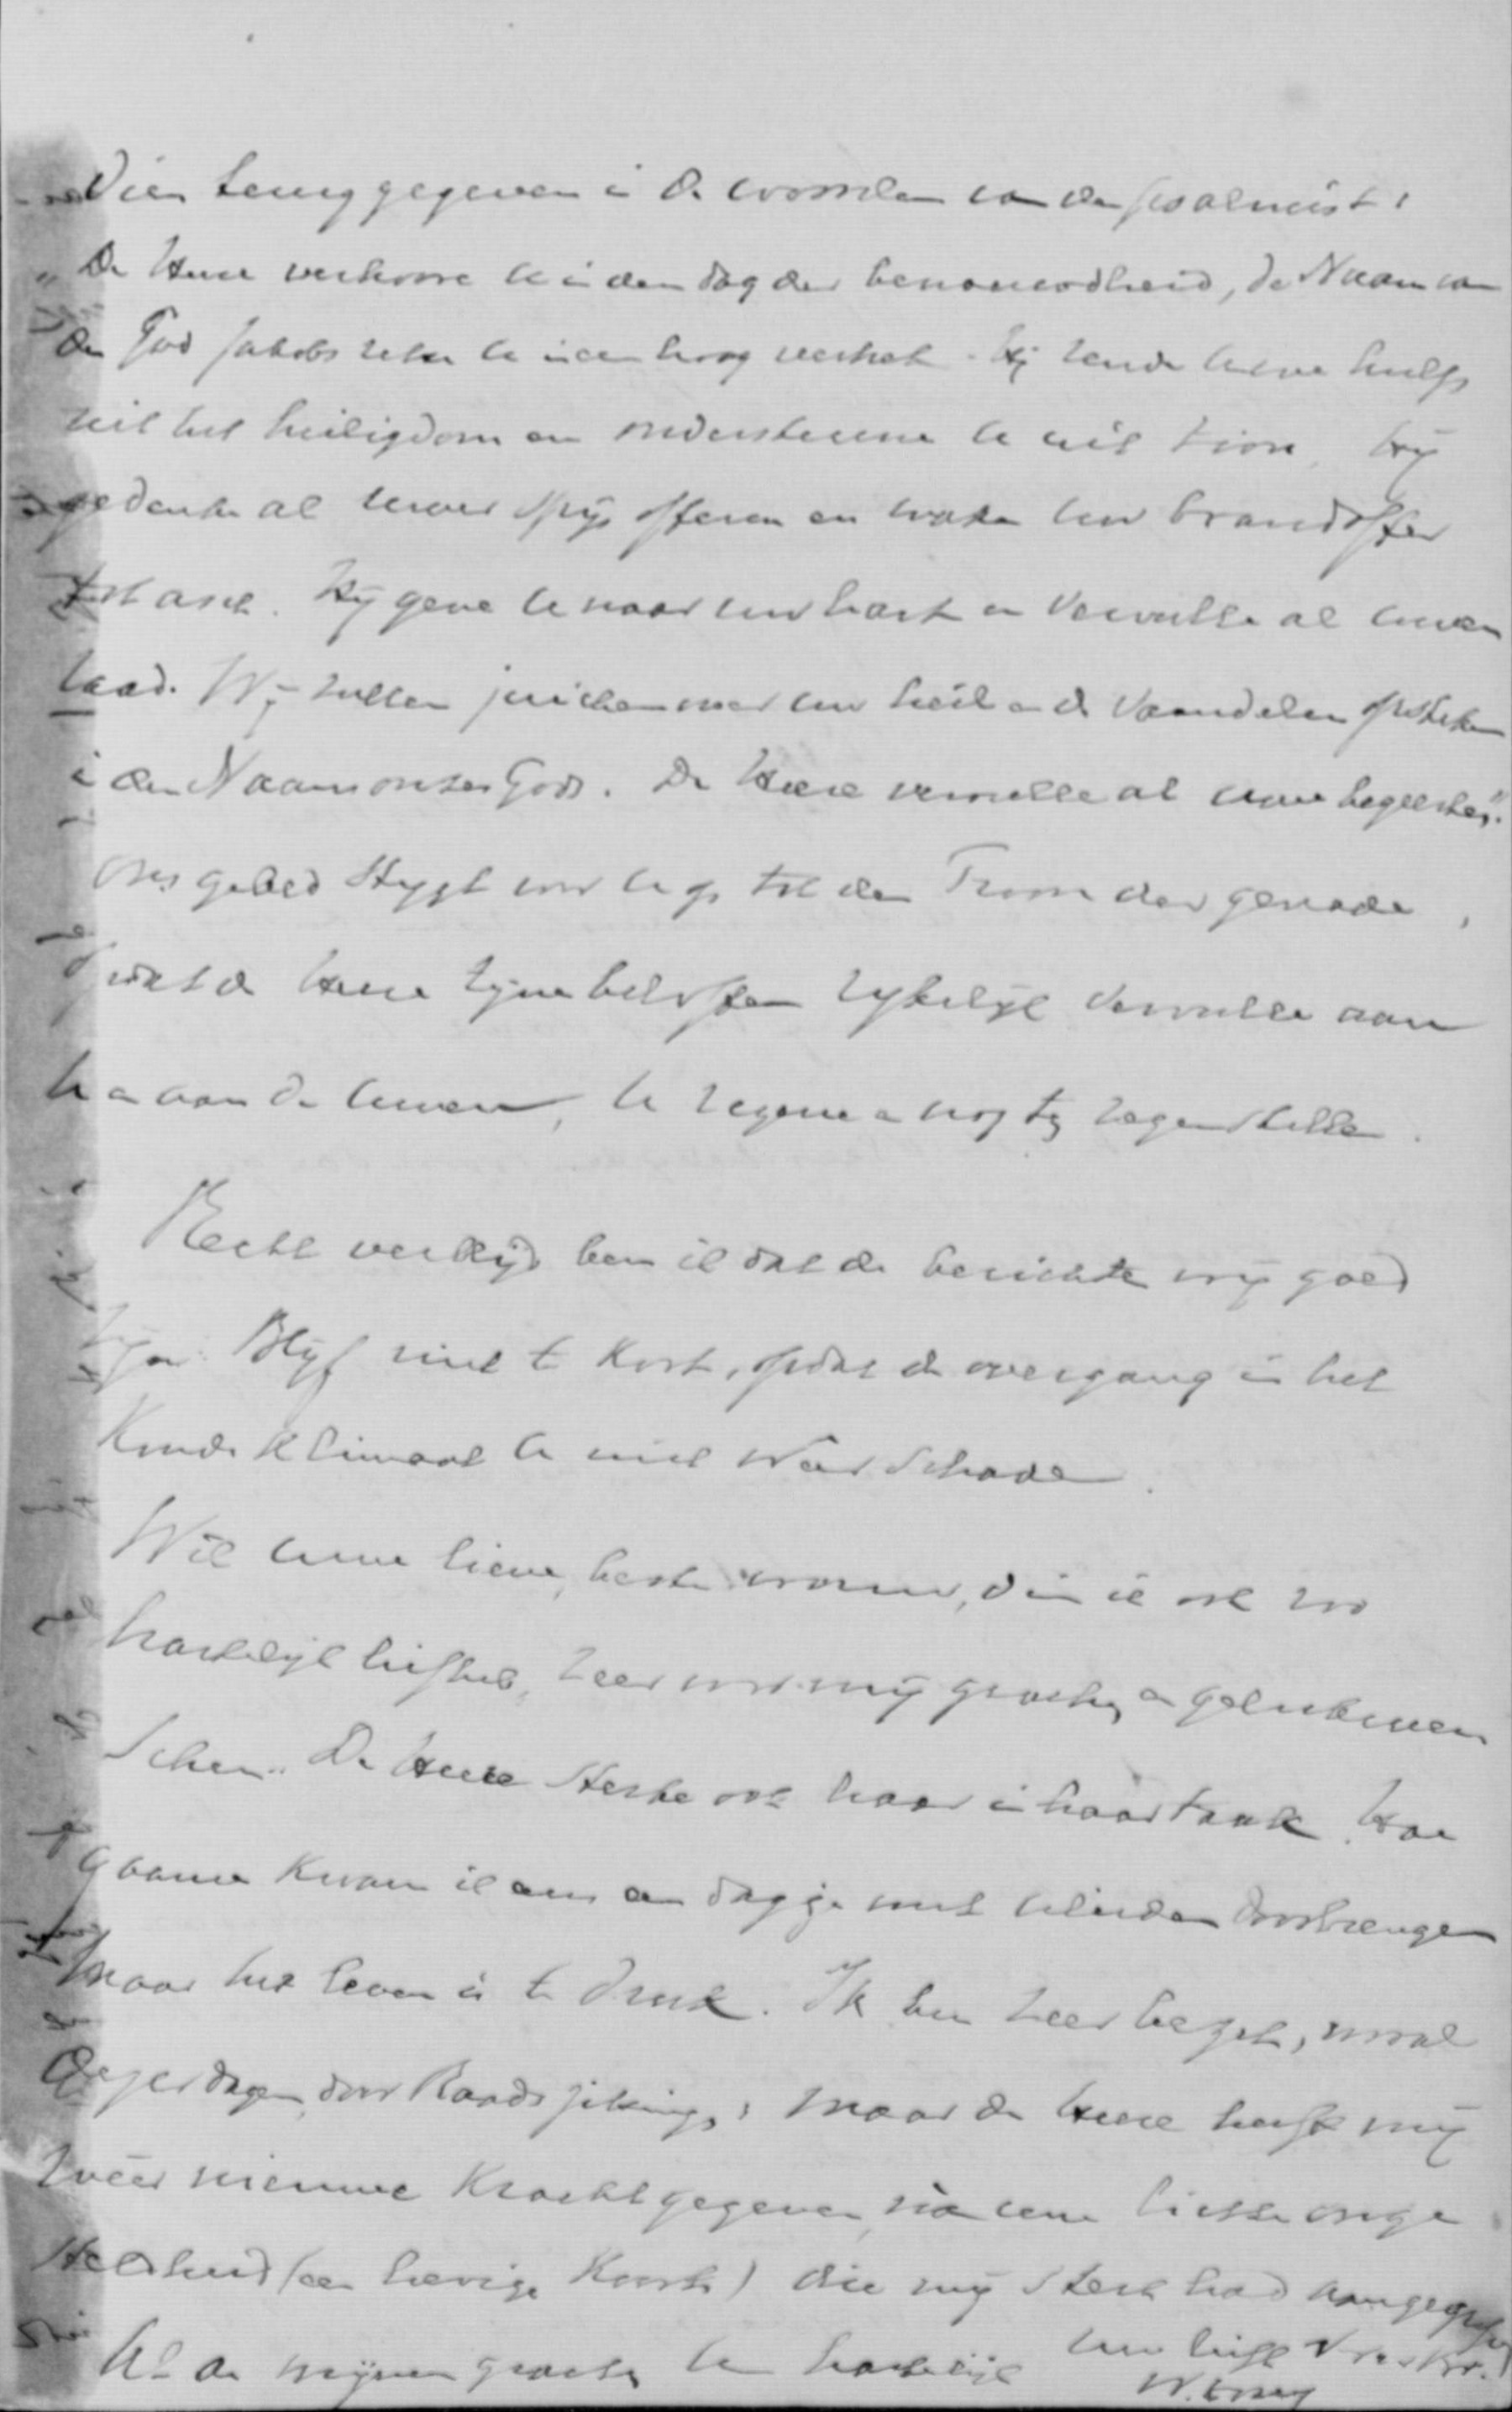 Dien teruggegeven in de woorden van den psalmist:
„De Heere verhoore U in den dag der benauwdheid, de Naam van
den God Jakobs zette U in een hoog vertrek. Hij zende Uwe hulp
uit het heiligdom en ondersteune U uit Zion. Hij
gedenke al Uwer spijsofferen en make Uw brandoffer
tot asch. Hij geve U naar Uw hart en vervulle al Uwen
raad. Wij zullen juichen over Uw heil en de vaandelen opsteken
in den Naam onzes Gods. De Heere vervulle al Uwe begeerten".
Ons gebed stijgt voor U op tot den Troon der genade,
opdat de Heere zijne beloften rijkelijk vervulle aan
U en aan de Uwen, U zegene en nog tot zegen stelle.
Recht verblijd ben ik dat de berichten vrij goed
zijn. Blijf niet te kort, opdat de overgang in het
Koude klimaat U niet weer schade.
Wil Uwe lieve, beste vrouw, die ik ook zoo
hartelijk liefheb, zeer voor mij groeten en gelukwen
schen. De Heere sterke ook haar in haar taak. Hoe
gaarne kwam ik eens een dagje met Ulieden doorbrengen
maar het leven is te druk. Ik ben zeer bezet, vooral
dezer dagen door Raadszittings; maar de Heere heeft mij
weer nieuwe Kracht gegeven, na eene onge
steldheid (een hevige Koorts) die mij sterk had aangegrepen
Al de mijnen groeten U hartelijk